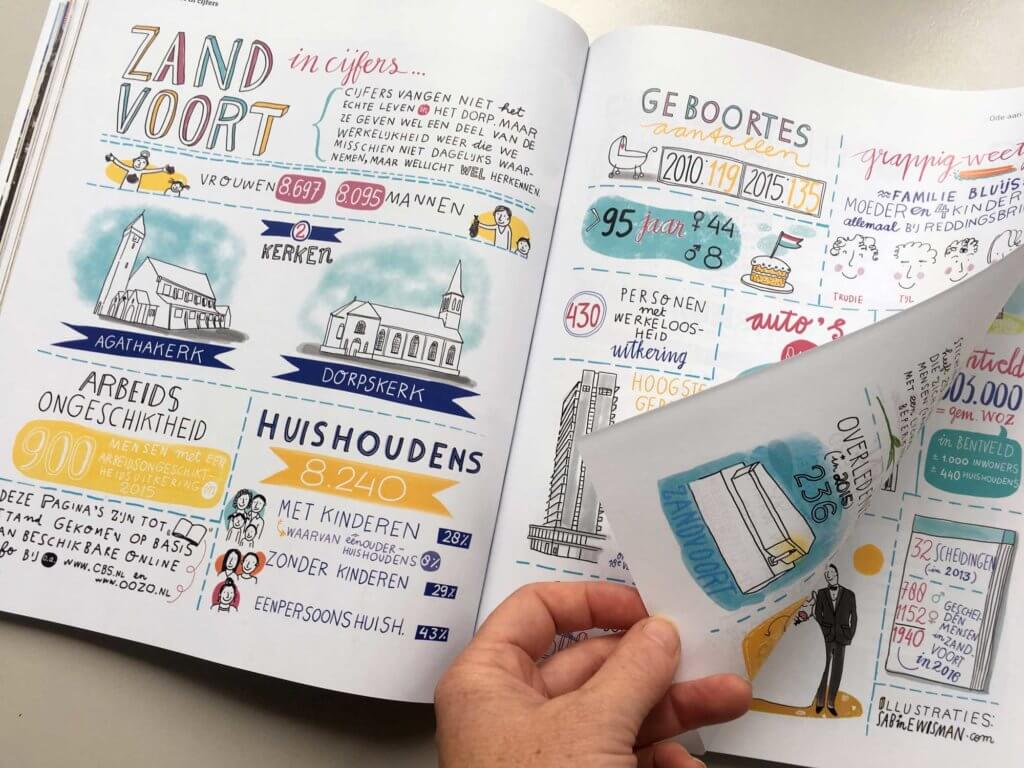 in cijfers
ZAND
VOORT
in cijfers...
CIJFERS VANGEN NIET het
ECHTE LEVEN in HET DORP. MAAR
ZE GEVEN WEL EEN DEEL VAN DE
WERKELIJKHEID WEER die WE
MISSCHIEN NIET DAGELIJKS WAAR-
NEMEN, MAAR WELLICHT WEL HERKENNEN.
VROUWEN 8.697 8.095 MANNEN
2
KERKEN
AGATHAKERK
DORPSKERK
ARBEIDS
ONGESCHIKTHEID
900 MENSEN MET EEN
ARBEIDSONGESCHIKT-
HEIDSUITKERING in
2015
DEZE PAGINA'S ZIJN TOT
STAND GEKOMEN OP BASIS
VAN BESCHIKBARE ONLINE
INFO BIJ o.a. WWW.CBS.NL en
WWW.OOZO.NL
HUISHOUDENS
8.240
MET KINDEREN 28%
WAARVAN EENOUDER-
HUISHOUDENS 9%
ZONDER KINDEREN 29%
EENPERSOONS HUISH. 43%
Ode aan
GEBOORTES
aantallen
2010:119 2015:135
>95 jaar ♀44
♂8
430 PERSONEN
met
WERKELOOS-
HEID
uitkering
auto's
HOOGSTE
grappig weet
FAMILIE BLUIJS
MOEDER en 4 KINDER
allemaal BIJ REDDINGSBRI
TRUDIE TIJL
OVERLEDE
(in 2015)
236
ZANDVOORT
ntveld
05.000
= gem. WOZ
in BENTVELD
± 1.000 INWONERS
± 440 HUISHOUDENS
32 SCHEIDINGEN
(in 2013)
788 ♂
1152 ♀
1940
GESCHEI-
DEN
MENSEN
in ZAND-
VOORT
in 2016
ILLUSTRATIES:
SABINEWISMAN.com